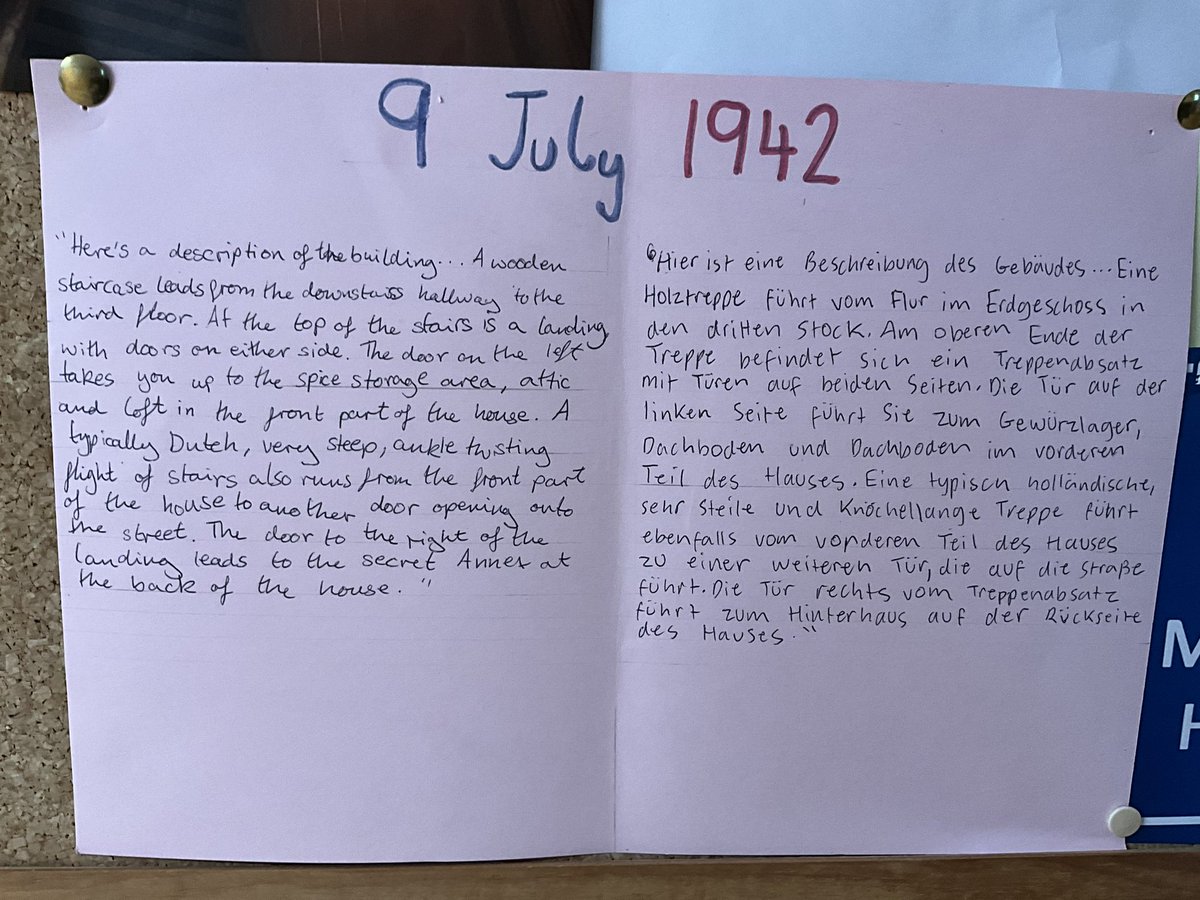 9 July 1942
"Here's a description of the building... A wooden
staircase leads from the downstairs hallway to the
third floor. At the top of the stairs is a landing
with doors on either side. The door on the left
takes you up to the spice storage area, attic
and loft in the front part of the house. A
typically Dutch, very steep, ankle twisting
flight of stairs also runs from the front part
of the house to another door opening onto
the street. The door to the right of the
landing leads to the secret Annex at
the back of the house."
"Hier ist eine Beschreibung des Gebäudes... Eine
Holztreppe führt vom Flur im Erdgeschoss in
den dritten Stock. Am oberen Ende der
Treppe befindet sich ein Treppenabsatz
mit Türen auf beiden Seiten. Die Tür auf der
linken Seite führt Sie zum Gewürzlager,
Dachboden und Dachboden im vorderen
Teil des Hauses. Eine typisch holländische,
sehr steile und Knöchellange Treppe führt
ebenfalls vom vorderen Teil des Hauses
zu einer weiteren Tür, die auf die Straße
führt. Die Tür rechts vom Treppenabsatz
führt zum Hinterhaus auf der Rückseite
des Hauses."
M
H